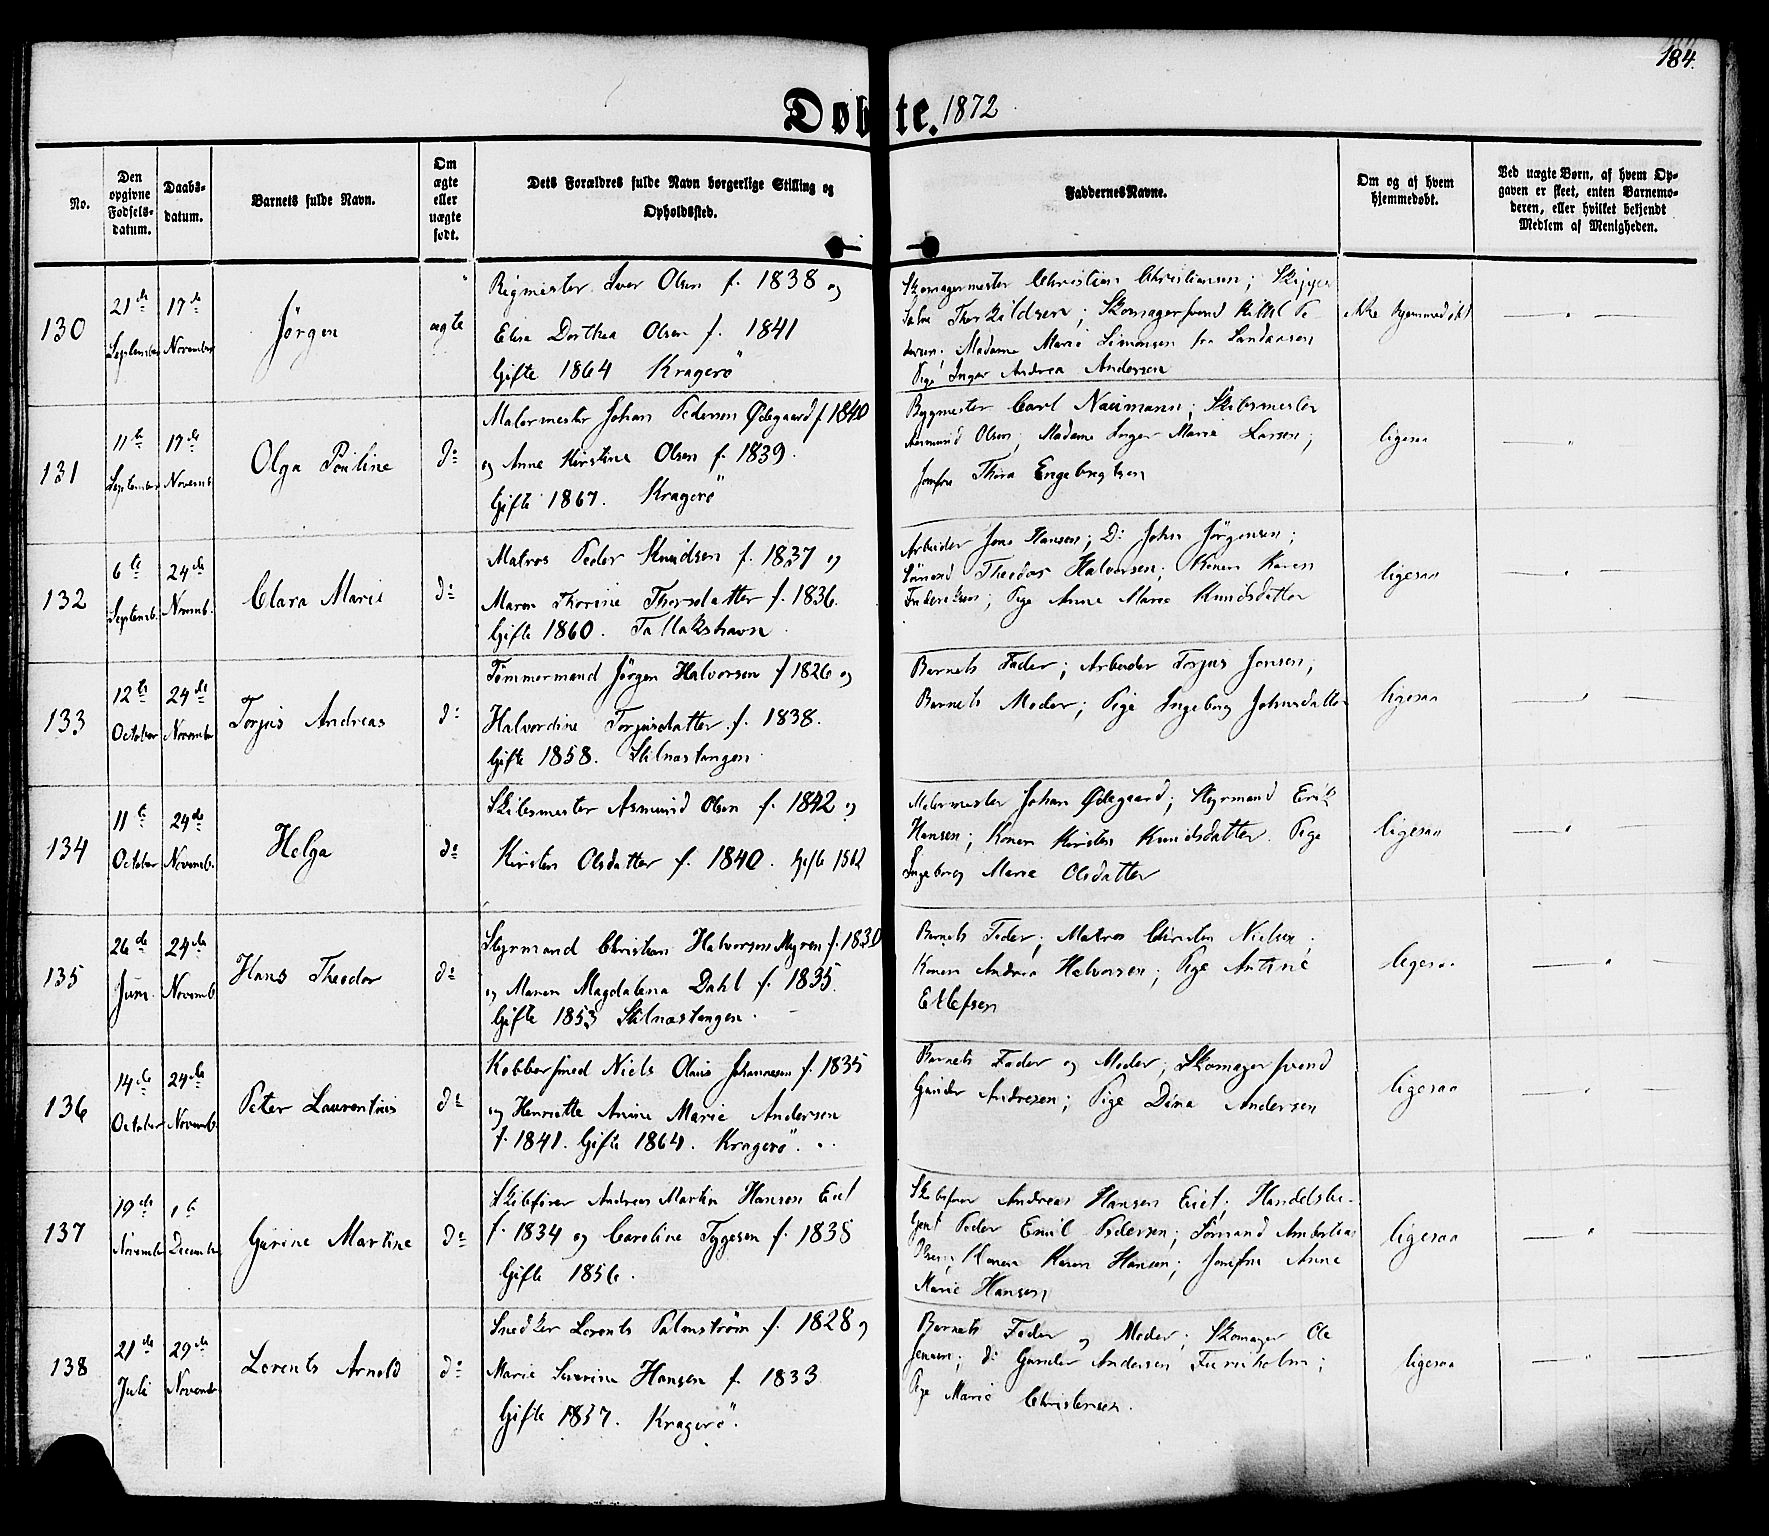 184.
Døbte. 1872
No.
Den opgivne Fødsels-datum.
Daabs-datum.
Barnets fulde Navn.
Om ægte eller uægte født.
Dets Forældres fulde Navn borgerlige Stilling og Opholdssted.
Faddernes Navne.
Om og af hvem hjemmedøbt.
Ved uægte Børn, af hvem Opgaven er skeet, enten Barnemoderen, eller hvilket bekjendt Medlem af Menigheden.
130
21de September
17de November
Jørgen
ægte
Rigmester Iver Olsen f. 1838 og
Elise Dorthea Olsen f. 1841
Gifte 1864 Kragerö
Skomagermester Christian Christiansen; Skipper
Thorkildsen; Skomagersvend Pe-
dersen; Madame Marie Simonsen fra
Pige Inger Andrea Andersen
ikke hjemmedøbt
131
11te September
17de Novemb.
Olga Pouline
do
Malermester Johan Pedersen Ødegaard f. 1840
og Anne Kirstine Olsen f. 1839.
Gifte 1867. Kragerö
Bygmester Carl Naümann; Skibsmester
Asmund Olsen; Madame Inger Marie Larsen;
Jomfru Thora Engebregtsen
ligesaa
132
6te Septemb.
24de Novemb.
Clara Marie
do
Matros Peder Knudsen f. 1837 og
Maren Thorine Thorsdatter f. 1836.
Gifte 1860. Tallakshavn.
Arbeider Jens Hansen; Do John Jörgensen;
Sömand Theodor Halvorsen; Konen Karen
Frederiksen; Pige Anne Marie Knudsdatter
ligesaa
133
12te October
24de November
Torjus Andreas
do
Tømmermand Jörgen Halvorsen f 1826 og
Halvordine Torjusdatter f. 1838.
Gifte 1858. Stilnestangen.
Barnets Fader; Arbeider Torjus Jonsen;
Barnets Moder; Pige Ingeborg Johnsdatter
ligesaa
134
11te October
24de Novemb.
Helga
do
Skibsmester Asmund Olsen f. 1842 og
Kirsten Olsdatter f. 1840. Gifte 1862
Malermester Johan Ødegaard; Styrmand Erik
Hansen; Konen Kirsten Knudsdatter. Pige
Ingeborg Marie Olsdatter
ligesaa
135
26de Juni
24de Novemb
Hans Theodor
do
Styrmand Christian Halvorsen Myren f. 1830
og Maren Magdalena Dahl f. 1835.
Gifte 1853 Stilnestangen.
Barnets Fader; Matros Christen Nielsen;
Konen Andrea Halvorsen; Pige Antine
Ellefsen
ligesaa
136
14de October
24de Novemb.
Peter Laurentius
do
Kobbersmed Niels Olaus Johannesen f. 1835
og Henriette Anine Marie Andersen
f. 1841. Gifte 1864. Kragerö.
Barnets Fader og Moder; Skomagersvend
Gunder Andresen; Pige Dina Andersen
ligesaa
137
19de November
1te December
Gurine Martine
do
Skibsfører Andreas Martin Hansen
f. 1834 og Caroline Tygesen f. 1835
Gifte 1856.
Skibsfører Andreas Hansen; Handelsbe-
tjent Peder Emil Pedersen; Sømand
Konen Karen Hansen; Jomfru Anne
Marie Hansen
ligesaa
138
21de Juli
29de November
Lorents Arnold
do
Snedker Lorents Palmström f. 1828 og
Marie Severine Hansen f. 1833
Gifte 1857. Kragerö.
Barnets Fader og Moder; Skomager Ole
Jensen; do Gunder Andersen Furuholm;
Pige Marie Christensen.
ligesaa